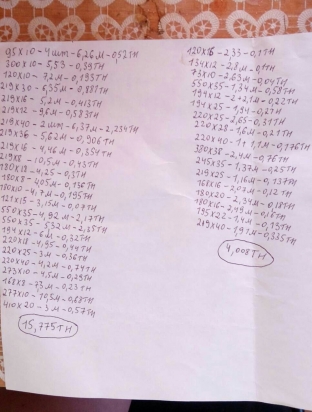 95x10 - 4шт - 6,26м - 0,52тн
300x10 - 5,53 - 0,39тн
120x10 - 7,2м - 0,193тн
219x30 - 6,35м - 0,887тн
219x16 - 5,2м - 0,413тн
219x12 - 9,6м - 0,583тн
219x40 - 2шт - 6,37м - 2,234тн
219x36 - 5,62м - 0,906тн
219x16 - 4,46м - 0,354тн
219x8 - 10,5м - 0,43тн
180x18 - 4,25 - 0,3тн
180x8 - 4,05м - 0,136тн
180x10 - 4,7м - 0,195тн
121x15 - 3,15м - 0,07тн
550x35 - 4,92м - 2,17тн
550x35 - 5,32м - 2,35тн
194x12 - 6м - 0,32тн
220x18 - 4,95 - 0,44тн
220x25 - 3м - 0,36тн
220x40 - 4,2м - 0,74тн
273x10 - 4,5м - 0,29тн
168x8 - 7,3м - 0,23тн
277x10 - 10,5м - 0,68тн
410x20 - 3м - 0,57тн
15,775тн
120x16 - 2,33 - 0,1тн
134x12 - 2,8м - 0,1тн
73x10 - 2,63м - 0,04тн
550x35 - 1,34м - 0,58тн
194x12 - 2+2,1м - 0,22тн
194x25 - 1,94 - 0,2тн
220x25 - 2,65 - 0,31тн
220x28 - 1,6м - 0,21тн
220x40 - 1,1м - 0,176тн
380x38 - 2,4м - 0,76тн
245x35 - 1,37м - 0,25тн
219x25 - 1,16м - 0,137тн
168x16 - 2,07м - 0,12тн
180x20 - 2,34м - 0,18тн
180x16 - 2,49м - 0,16тн
195x22 - 1,4м - 0,13тн
219x40 - 1,91м - 0,335тн
4,008тн